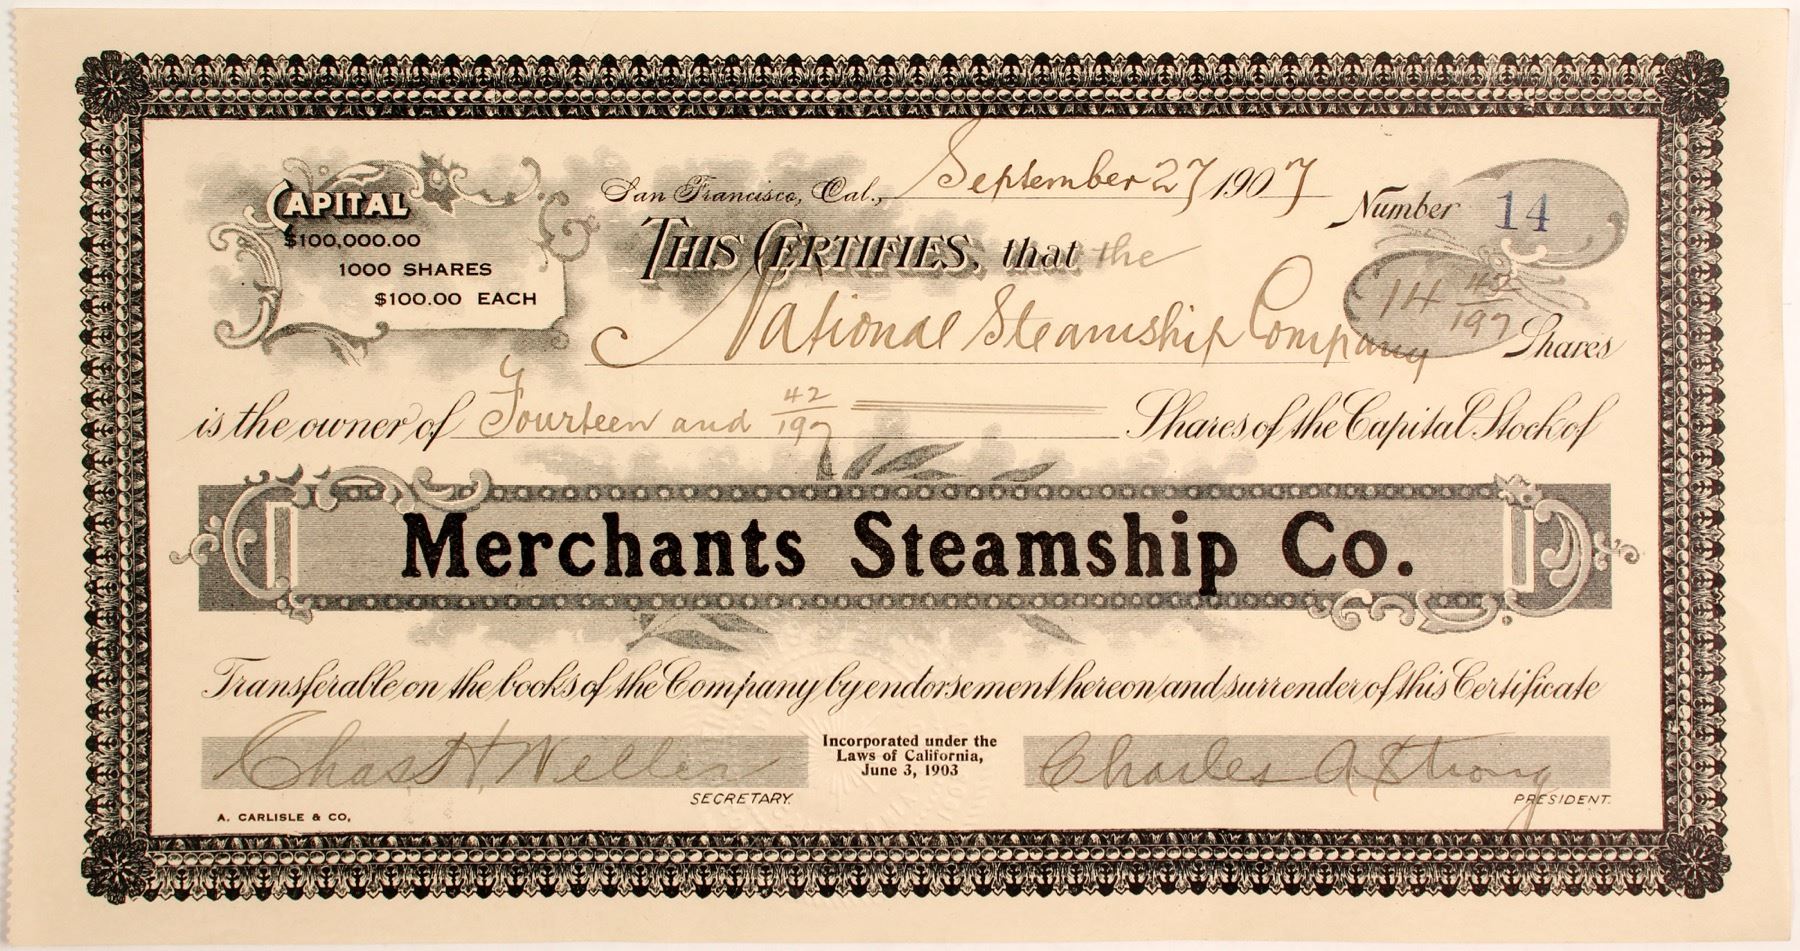 San Francisco, Cal., September 27 1907
CAPITAL
$100,000.00
1000 SHARES
$100.00 EACH
Number 14
THIS CERTIFIES, that the
National Steamship Company
14 42/197 Shares
is the owner of Fourteen and 42/197 Shares of the Capital Stock of
Merchants Steamship Co.
Transferable on the books of the Company by endorsement hereon and surrender of this Certificate
Chas. H.
SECRETARY.
Incorporated under the
Laws of California,
June 3, 1903
Charles A Strong
PRESIDENT.
A. CARLISLE & CO,